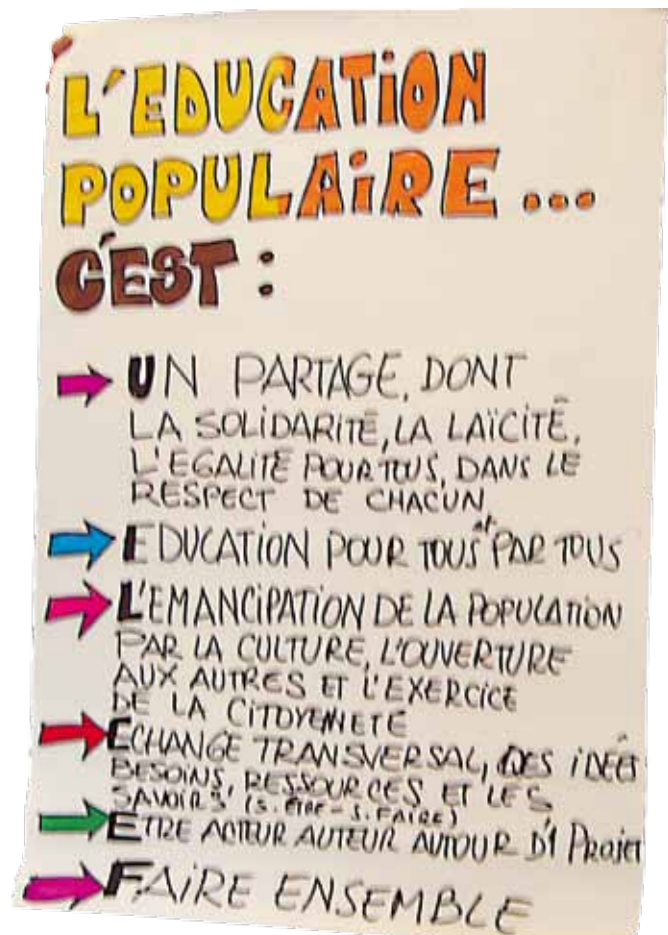 L'EDUCATiON
POPULAiRE...
C'EST :
UN PARTAGE, DONT
LA SOLiDARiTÉ, LA LAÏCiTÉ,
L'EGALiTÉ POUR TOUS, DANS LE
RESPECT DE CHACUN
EDUCATiON POUR TOUS et PAR TOUS
L'EMANCiPATiON DE LA POPULATiON
PAR LA CULTURE, L'OUVERTURE
AUX AUTRES ET L'EXERCiCE
DE LA CiTOYENNETÉ
ECHANGE TRANSVERSAL, DES iDÉES
BESOiNS, RESSOURCES ET LES
SAVOiRS (S. ÊTRE - S. FAiRE)
ETRE ACTEUR AUTEUR AUTOUR D'1 PROJET
FAiRE ENSEMBLE